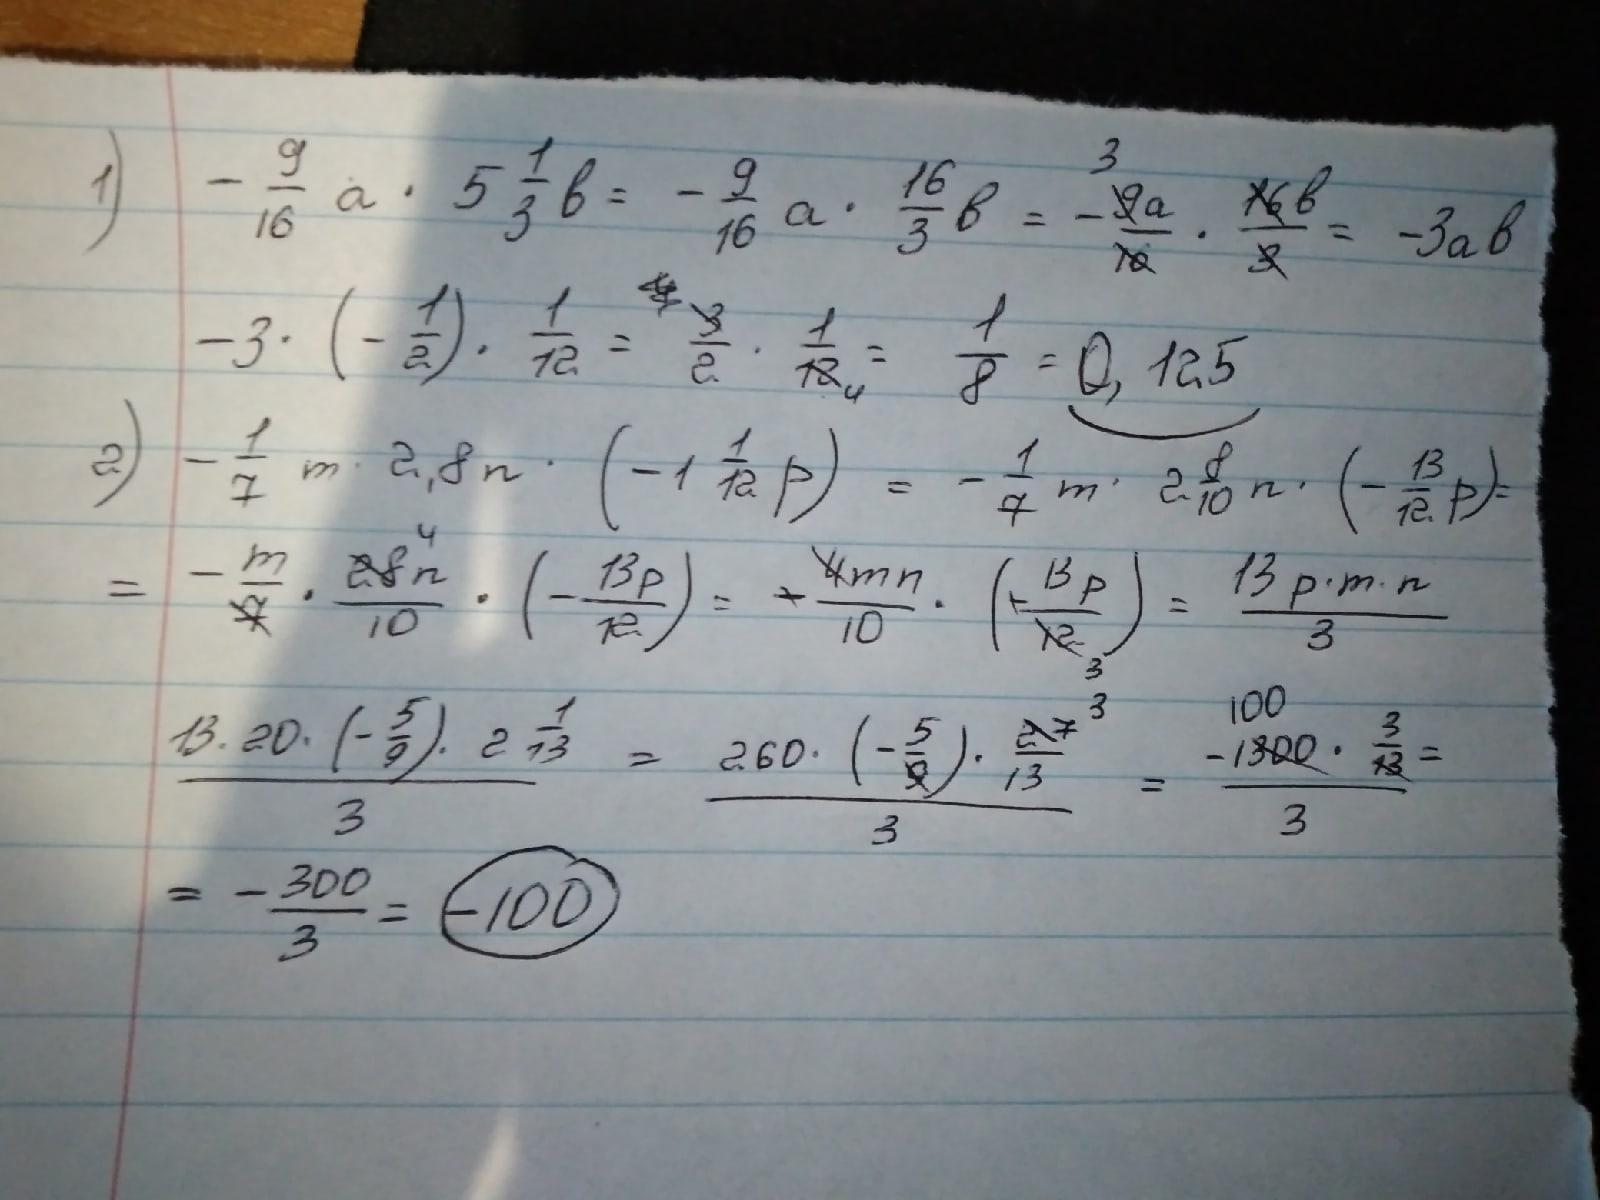 1) -9/16 a · 5 1/3 b = -9/16 a · 16/3 b = -9a/16 · 16b/3 = -3ab
-3 · (-1/2) · 1/12 = 3/2 · 1/12 = 1/8 = 0,125
2) -1/7 m · 2,8n · (-1 1/12 p) = -1/7 m · 2 8/10 n · (-13/12 p) =
= -m/7 · 28n/10 · (-13p/12) = +4mn/10 · (+13p/12) = 13p·m·n/3
13·20·(-5/9)·2 1/13 / 3 = 260·(-5/9)·27/13 / 3 = -1300 · 3/13 / 3 =
= -300/3 = -100